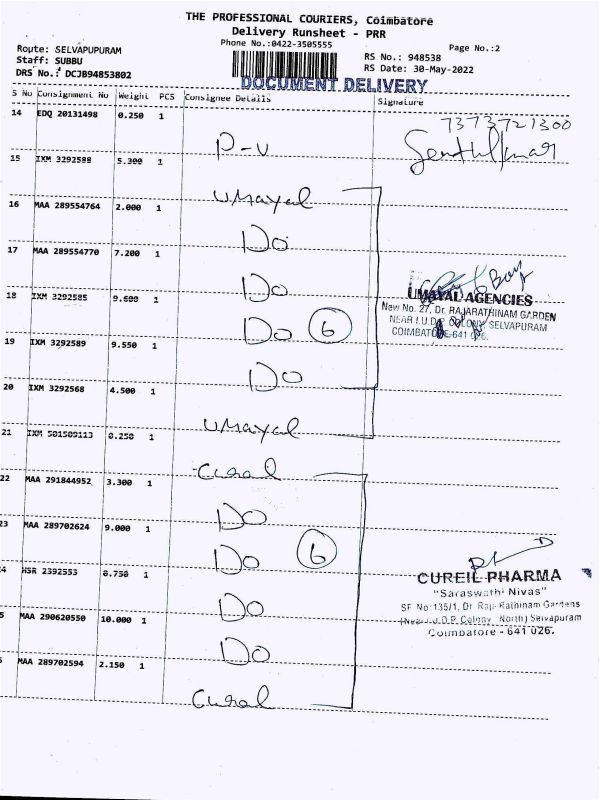 THE PROFESSIONAL COURIERS, Coimbatore
Delivery Runsheet - PRR
Phone No.:0422-3505555
Page No.:2
Route: SELVAPUPURAM
Staff: SUBBU
DRS No.: DCJB94853802
RS No.: 948538
RS Date: 30-May-2022
DOCUMENT DELIVERY
S No Consignment No Weight PCS Consignee Details Signature
14 EDQ 20131498 0.250 1
7373721300
P-V
Senthilkumar
15 IXM 3292588 5.300 1
Umayal
16 MAA 289554764 2.000 1
Do
17 MAA 289554770 7.200 1
Do
18 IXM 3292585 9.600 1
Do 6
UMAYAL AGENCIES
New No. 27, Dr. RAJARATHINAM GARDEN
NEAR I.U.D.P. COLONY, SELVAPURAM
COIMBATORE-641 026.
19 IXM 3292589 9.550 1
Do
20 IXM 3292568 4.500 1
Umayal
21 IXM 501509113 0.250 1
Cural
22 MAA 291844952 3.300 1
Do
23 MAA 289702624 9.000 1
Do 6
4 HSR 2392553 0.750 1
Do
CUREIL PHARMA
"Saraswathi Nivas"
SF No:135/1, Dr. Raja Rathinam Gardens
(Near I.U.D.P. Colony North) Selvapuram
Coimbatore - 641 026.
5 MAA 290620550 10.000 1
Do
MAA 289702594 2.150 1
Cural